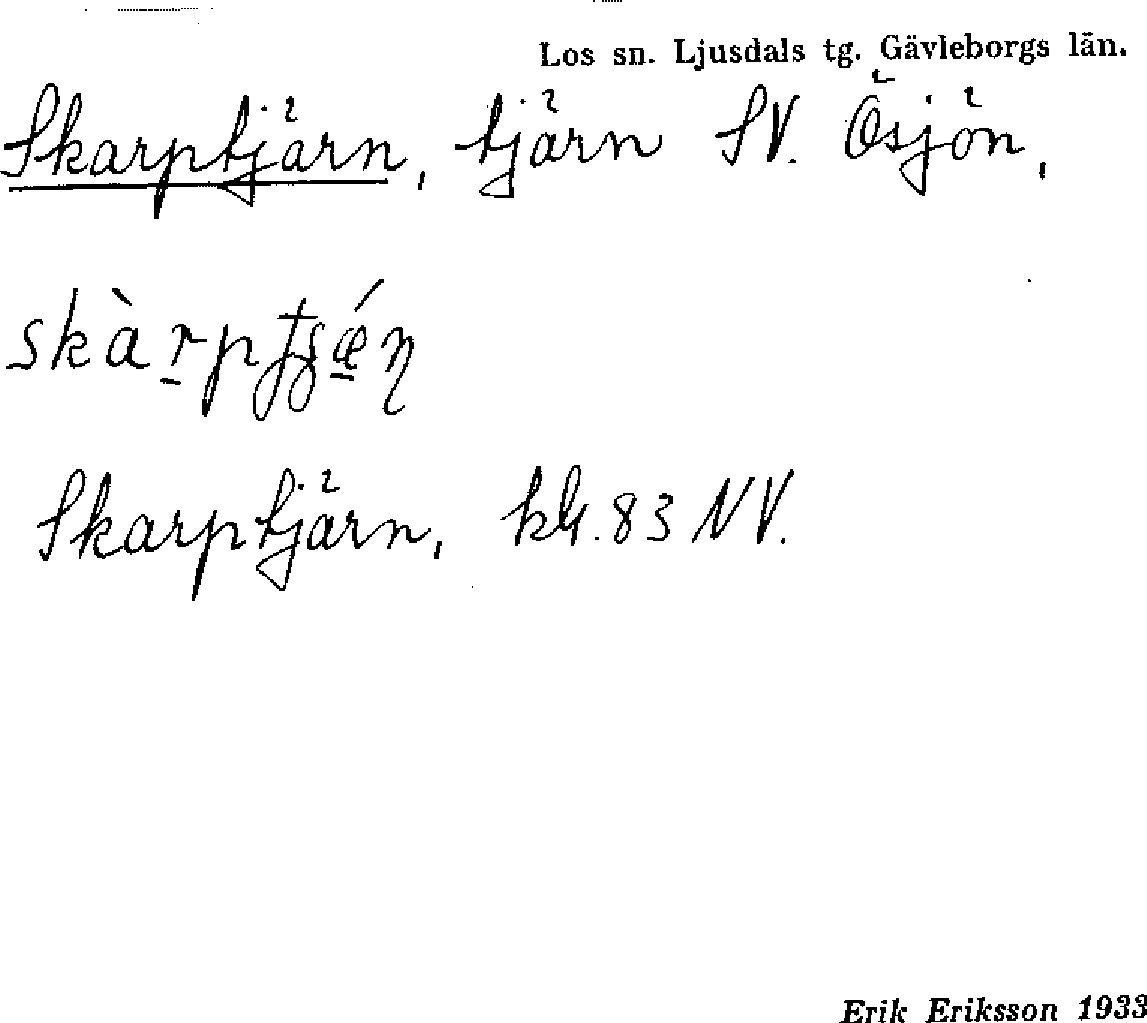 Los sn. Ljusdals tg. Gävleborgs län.
Skarptjärn, tjärn SV. Ösjön,
Skarptjärn, kbl. 83 NV.
Erik Eriksson 1933